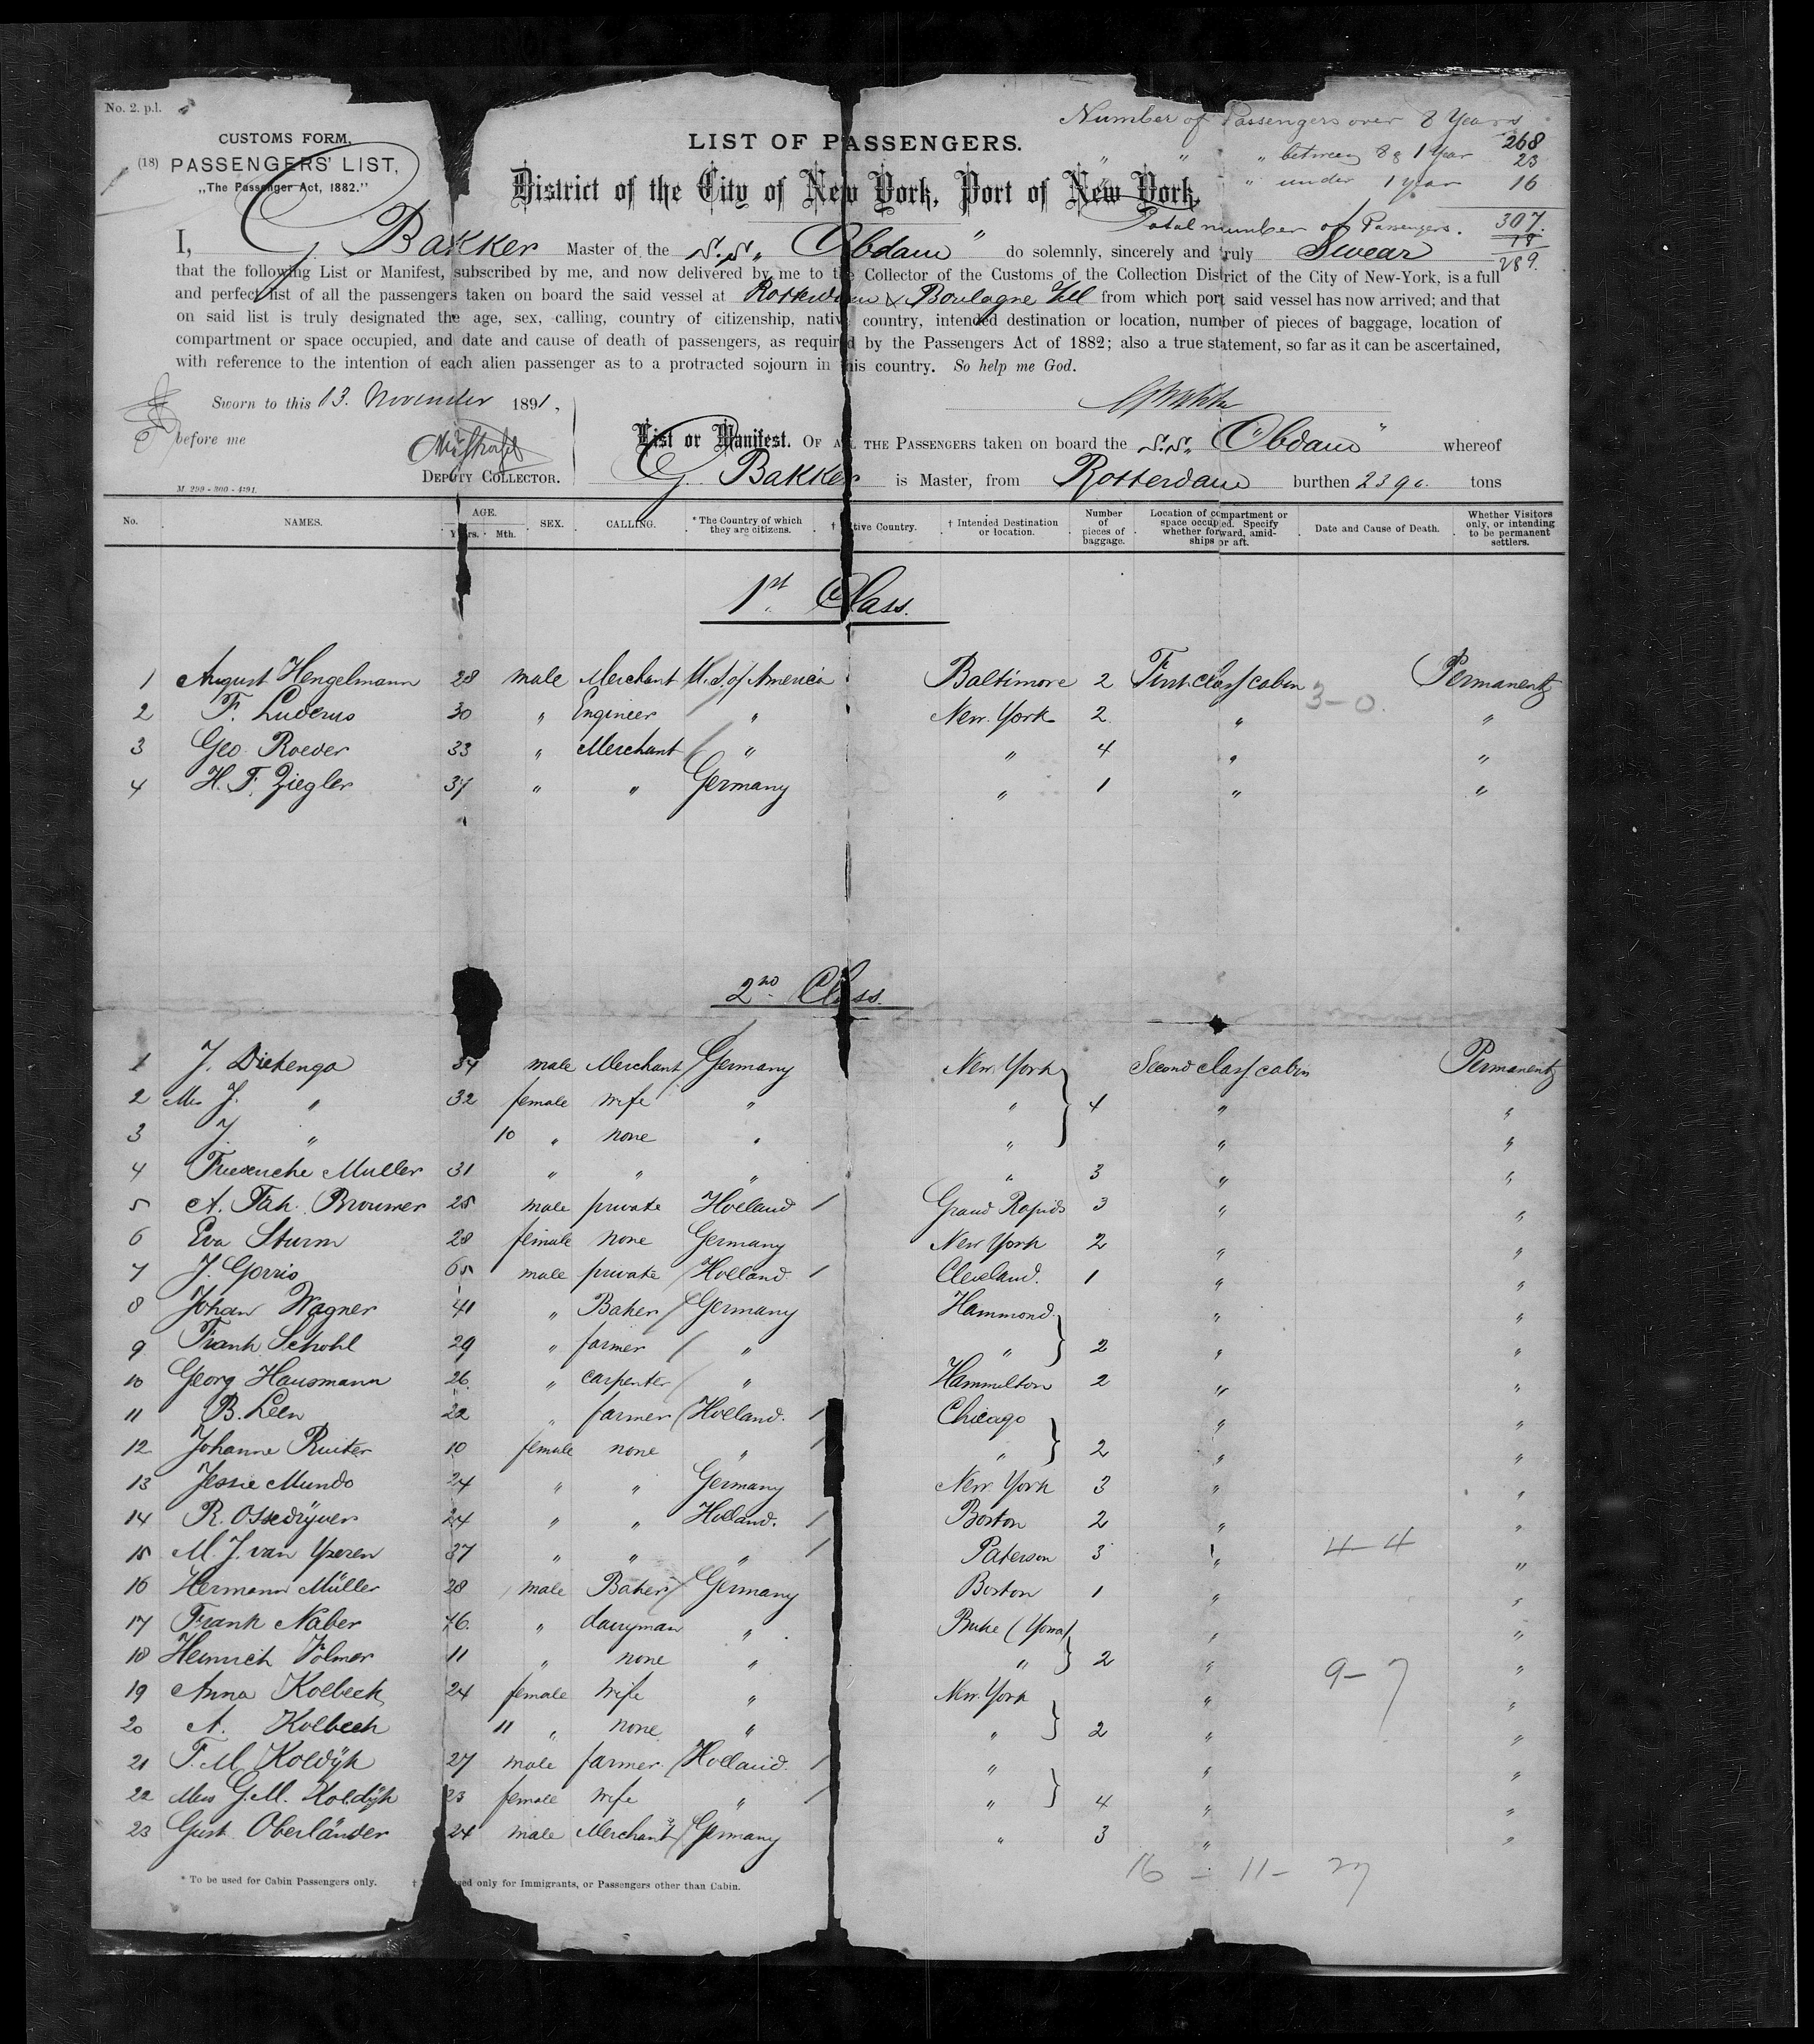 No. 2. p.l.
CUSTOMS FORM,
(18) PASSENGERS' LIST,
„The Passenger Act, 1882."
LIST OF PASSENGERS.
District of the City of New York, Port of New York.
Number of Passengers over 8 Years 268
" " " between 8 & 1 Year 23
" under 1 year 16
Total number of Passengers. 307.
18
289.
I, G. Bakker Master of the S.S. „Obdam" do solemnly, sincerely and truly Swear
that the following List or Manifest, subscribed by me, and now delivered by me to the Collector of the Customs of the Collection District of the City of New-York, is a full
and perfect list of all the passengers taken on board the said vessel at Rotterdam & Boulogne from which port said vessel has now arrived; and that
on said list is truly designated the age, sex, calling, country of citizenship, native country, intended destination or location, number of pieces of baggage, location of
compartment or space occupied, and date and cause of death of passengers, as required by the Passengers Act of 1882; also a true statement, so far as it can be ascertained,
with reference to the intention of each alien passenger as to a protracted sojourn in this country. So help me God.
Sworn to this 13. November 1891,
before me
DEPUTY COLLECTOR.
M 299 - 300 - 4·91.
List or Manifest. OF ALL THE PASSENGERS taken on board the S.S. „Obdam" whereof
G. Bakker is Master, from Rotterdam burthen 2390. tons
No. NAMES. AGE. Years. Mth. SEX. CALLING. * The Country of which they are citizens. † Native Country. † Intended Destination or location. Number of pieces of baggage. Location of compartment or space occupied. Specify whether forward, amidships or aft. Date and Cause of Death. Whether Visitors only, or intending to be permanent settlers.
1st Class.
1 August Hengelmann 28 male Merchant U.S. of America Baltimore 2 First class cabin Permanent
3-0.
2 F. Luderus 30 " Engineer " New-York 2 " "
3 Geo. Roever 33 " Merchant " " 4 " "
4 H. F. Ziegler 37 " " Germany " 1 " "
2nd Class.
1 J. Diekenga 34 male Merchant Germany New York Second class cabin Permanent
2 Mrs J. " 32 female wife " " 4 " "
3 J. " 10 " none " " " "
4 Friederiche Muller 31 " " " " 3 " "
5 A. Fah. Brouwer 25 male private Holland / Grand Rapids 3 " "
6 Eva Sturm 28 female none Germany New York 2 " "
7 J. Gorris 65 male private Holland / Cleveland. 1 " "
8 Johan Wagner 41 " Baker Germany Hammond. " "
9 Frank Schohl 29 " farmer " " 2 " "
10 Georg Hausmann 26. " carpenter " Hammilton 2 " "
11 B. Leen 22 " farmer Holland. / Chicago " "
12 Johanne Ruiter 10 female none " / " 2 " "
13 Jessie Mundo 24 " " Germany New York 3 " "
14 R. Ossedrÿver 24 " " Holland. / Boston 2 " "
15 M. J. van Yperen 37 " " " / Paterson 3 " 4-4 "
16 Hermann Müller 28 male Baker Germany Boston 1 " "
17 Frank Naber 46. " dairyman " (Yowa) " "
18 Heinrich Volmer 11 " none " " 2 " 9-7 "
19 Anna Kolbeck 24 female wife " New York " "
20 A. Kolbeck 11 " none " " 2 " "
21 F. M. Koldÿk 27 male farmer Holland. / " " "
22 Mrs G. M. Koldÿk 23 female wife " / " 4 " "
23 Gust Oberländer 24 male Merchant Germany " 3 " "
16 - 11 - 27
* To be used for Cabin Passengers only. † used only for Immigrants, or Passengers other than Cabin.